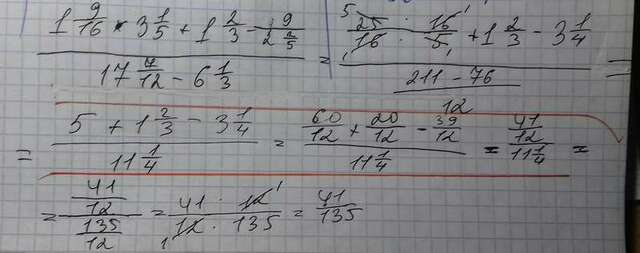 (1 9/16 * 3 1/5 + 1 2/3 - 9/(2 2/5)) / (17 7/12 - 6 1/3) = ((25 · 16)/(16 · 5) + 1 2/3 - 3 1/4) / (211 - 76) =
= (5 + 1 2/3 - 3 1/4) / (11 1/4) = (60/12 + 20/12 - 39/12) / (11 1/4) = (41/12) / (11 1/4) =
= (41/12) / (135/12) = (41 · 12) / (12 · 135) = 41/135